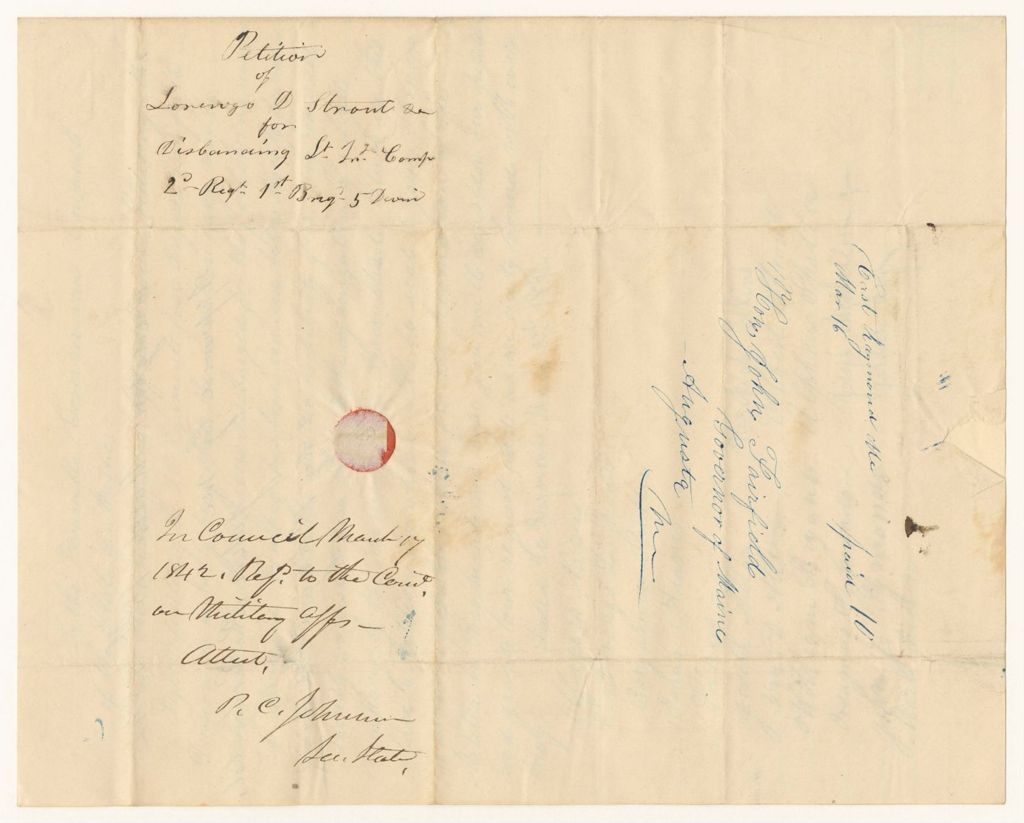 Petition
of
Lorenzo D Strout &a
for
Disbanding Lt Inf Comp
2d Regt 1st Brig 5 Divin
In Council March 17
1842. Refd. to the Com.
on Military Affs —
Attest,
P. C. Johnson
Sec. State,
East Raymond Me
Mar 16
paid 10
Hon John Fairfield
Governor of Maine
Augusta
Me